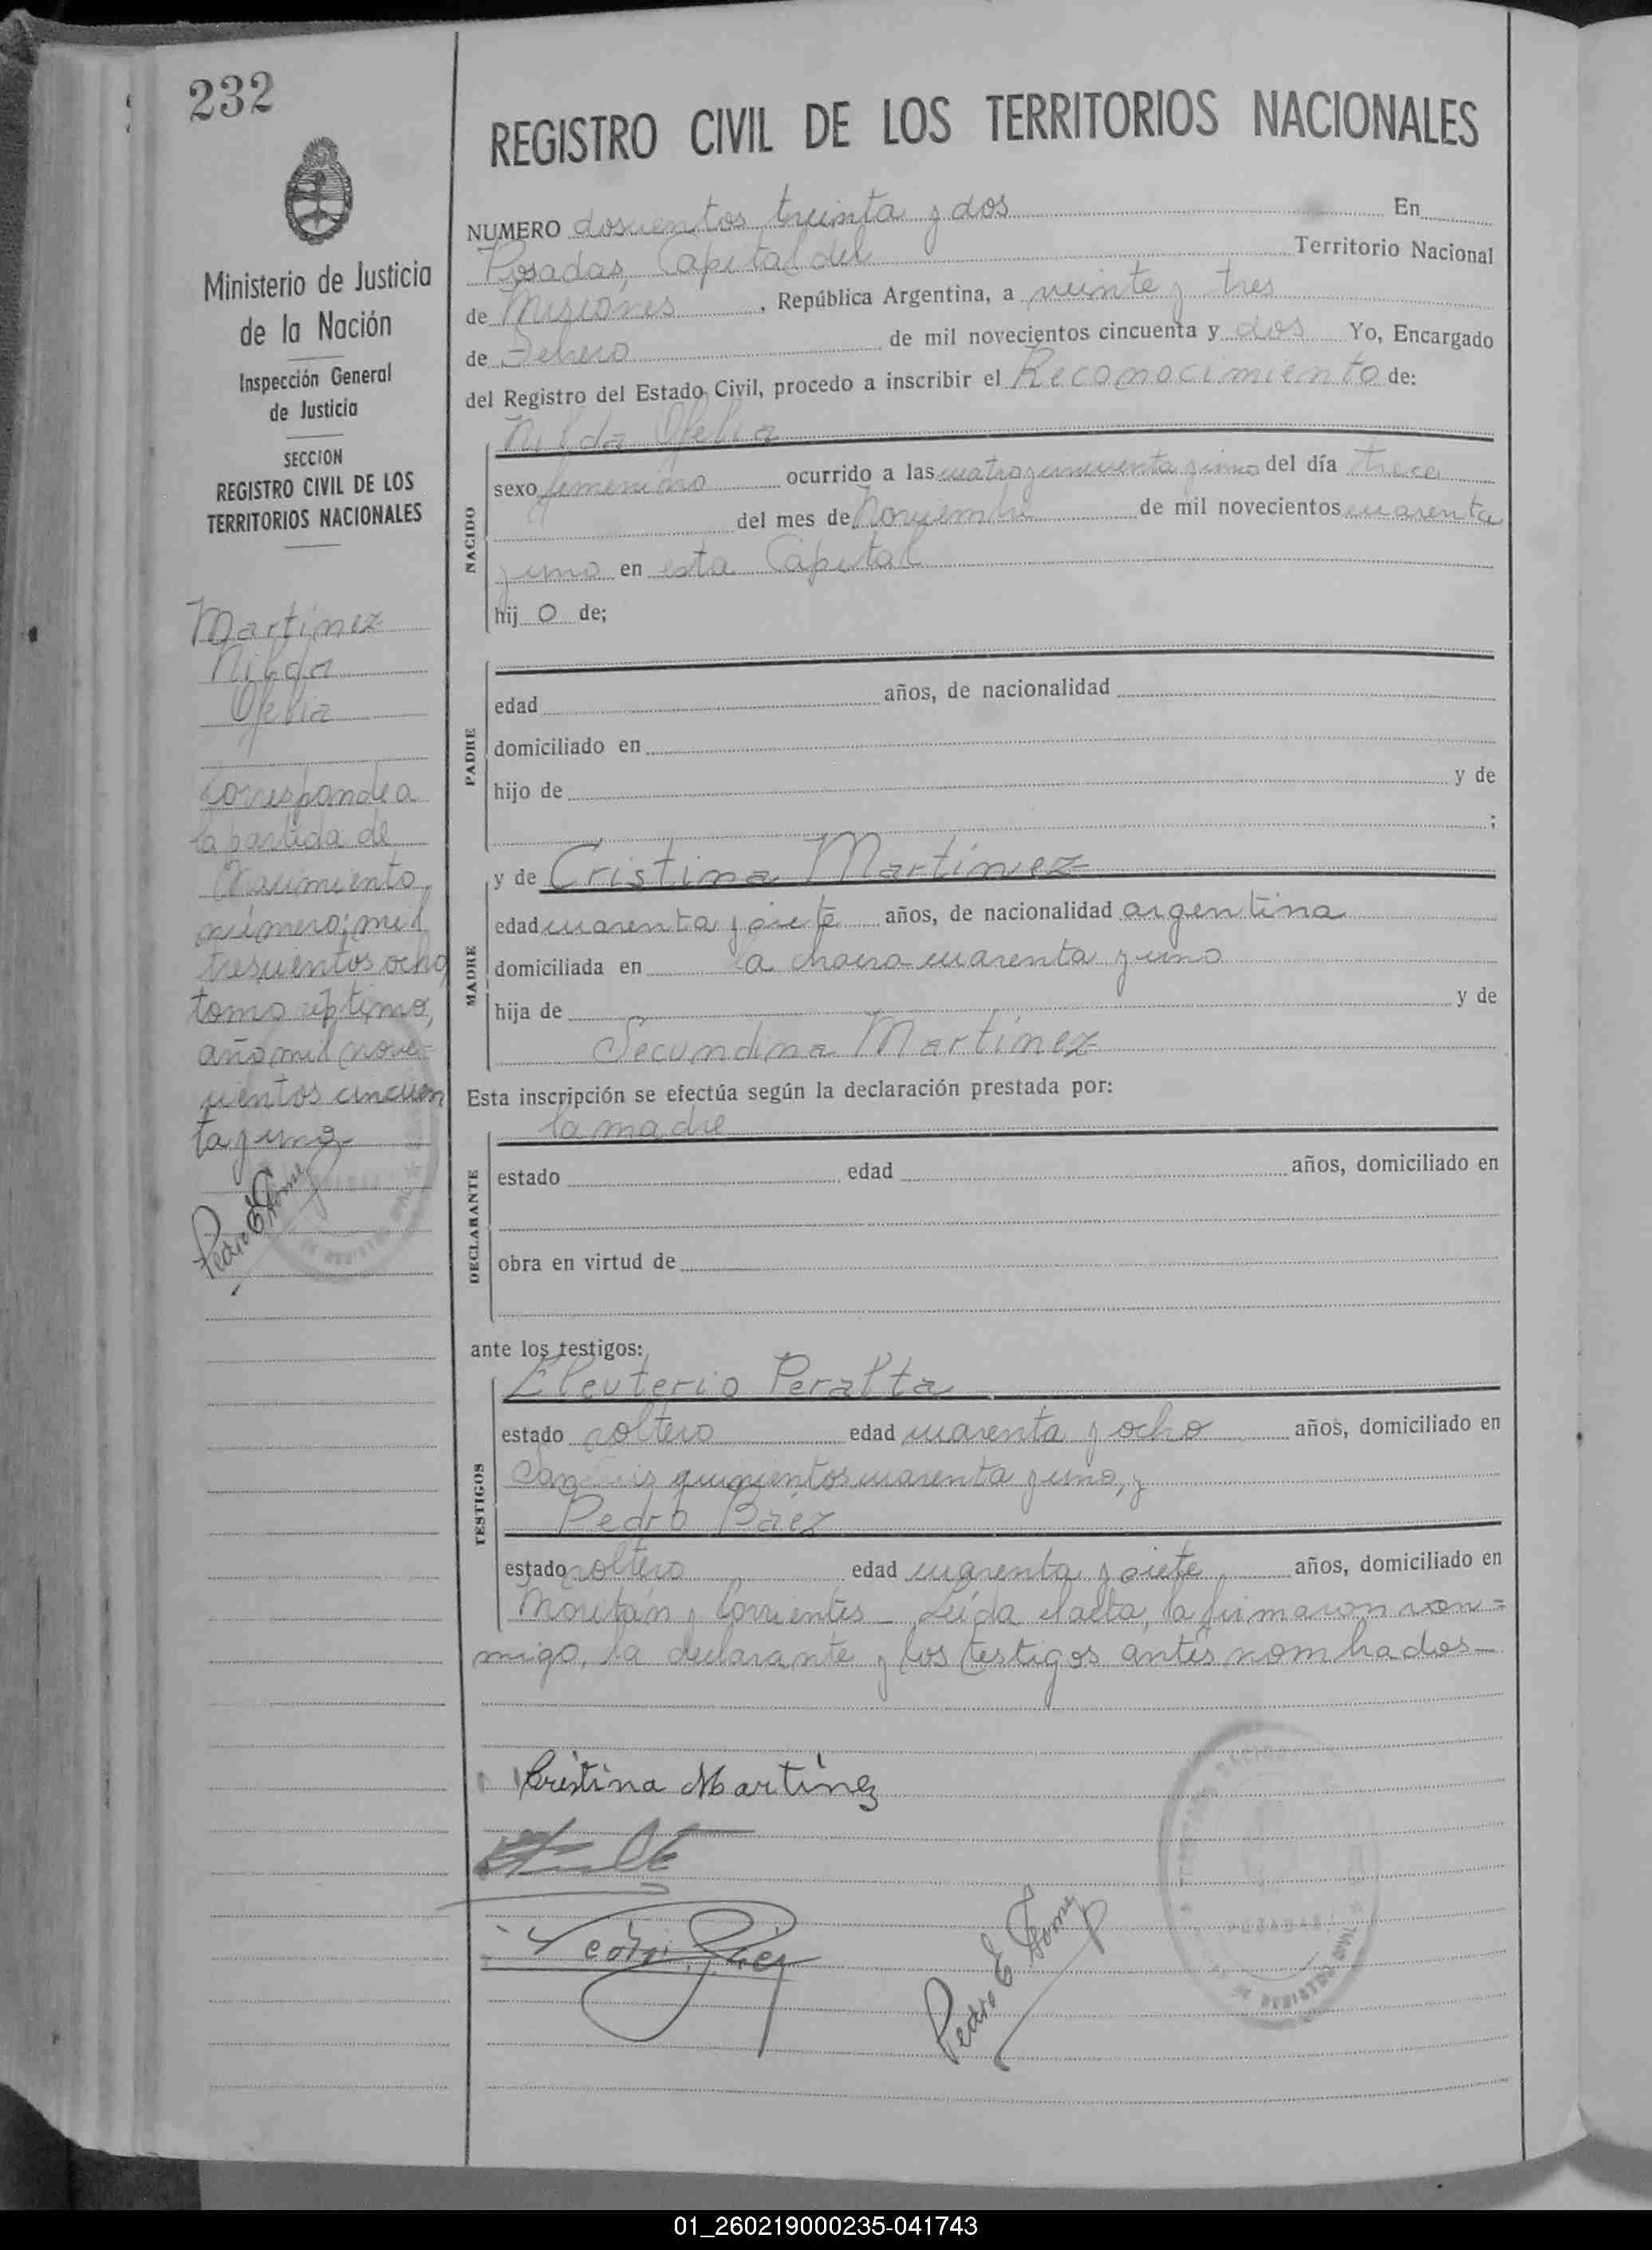 232
Ministerio de Justicia
de la Nación
Inspección General
de Justicia
SECCION
REGISTRO CIVIL DE LOS
TERRITORIOS NACIONALES
Martinez
Nilda
Ofelia
corresponde a
la partida de
Nacimiento
número: mil
trescientos ocho
tomo séptimo,
año mil nove-
cientos cincuen
ta y uno
Pedro E Gomez
REGISTRO CIVIL DE LOS TERRITORIOS NACIONALES
NUMERO doscientos treinta y dos En
Posadas, Capital del Territorio Nacional
de Misiones, República Argentina, a veinte y tres
de Febrero de mil novecientos cincuenta y dos Yo, Encargado
del Registro del Estado Civil, procedo a inscribir el Reconocimiento de:
Nilda Ofelia
NACIDO
sexo femenino ocurrido a las cuatro y cincuenta y cinco del día trece
del mes de Noviembre de mil novecientos cuarenta
y uno en esta Capital
hij o de;
PADRE
edad años, de nacionalidad
domiciliado en
hijo de y de
;
y de Cristina Martinez
MADRE
edad cuarenta y siete años, de nacionalidad argentina
domiciliada en la chacra cuarenta y uno
hija de y de
Secundina Martinez
Esta inscripción se efectúa según la declaración prestada por:
la madre
DECLARANTE
estado edad años, domiciliado en
obra en virtud de
ante los testigos:
Eleuterio Peralta
TESTIGOS
estado soltero edad cuarenta y ocho años, domiciliado en
San Luis quinientos cuarenta y uno, y
Pedro Báez
estado soltero edad cuarenta y siete años, domiciliado en
Moritán y Corrientes - Leída el acta, la firmaron con=
migo, la declarante y los testigos antes nombrados-
Cristina Martínez
Pedro Báez
Pedro E Gomez
DE REGISTRO CIVIL
POSADAS
01_260219000235-041743